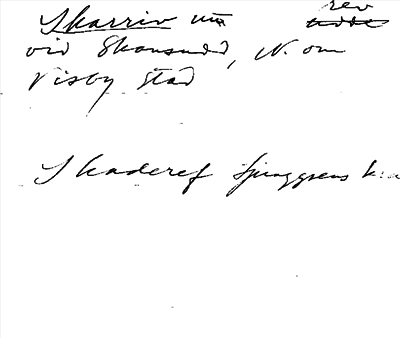 Skarriv
rev
vid Skansudd, N. om
Visby stad
Skaderef Ljunggrens